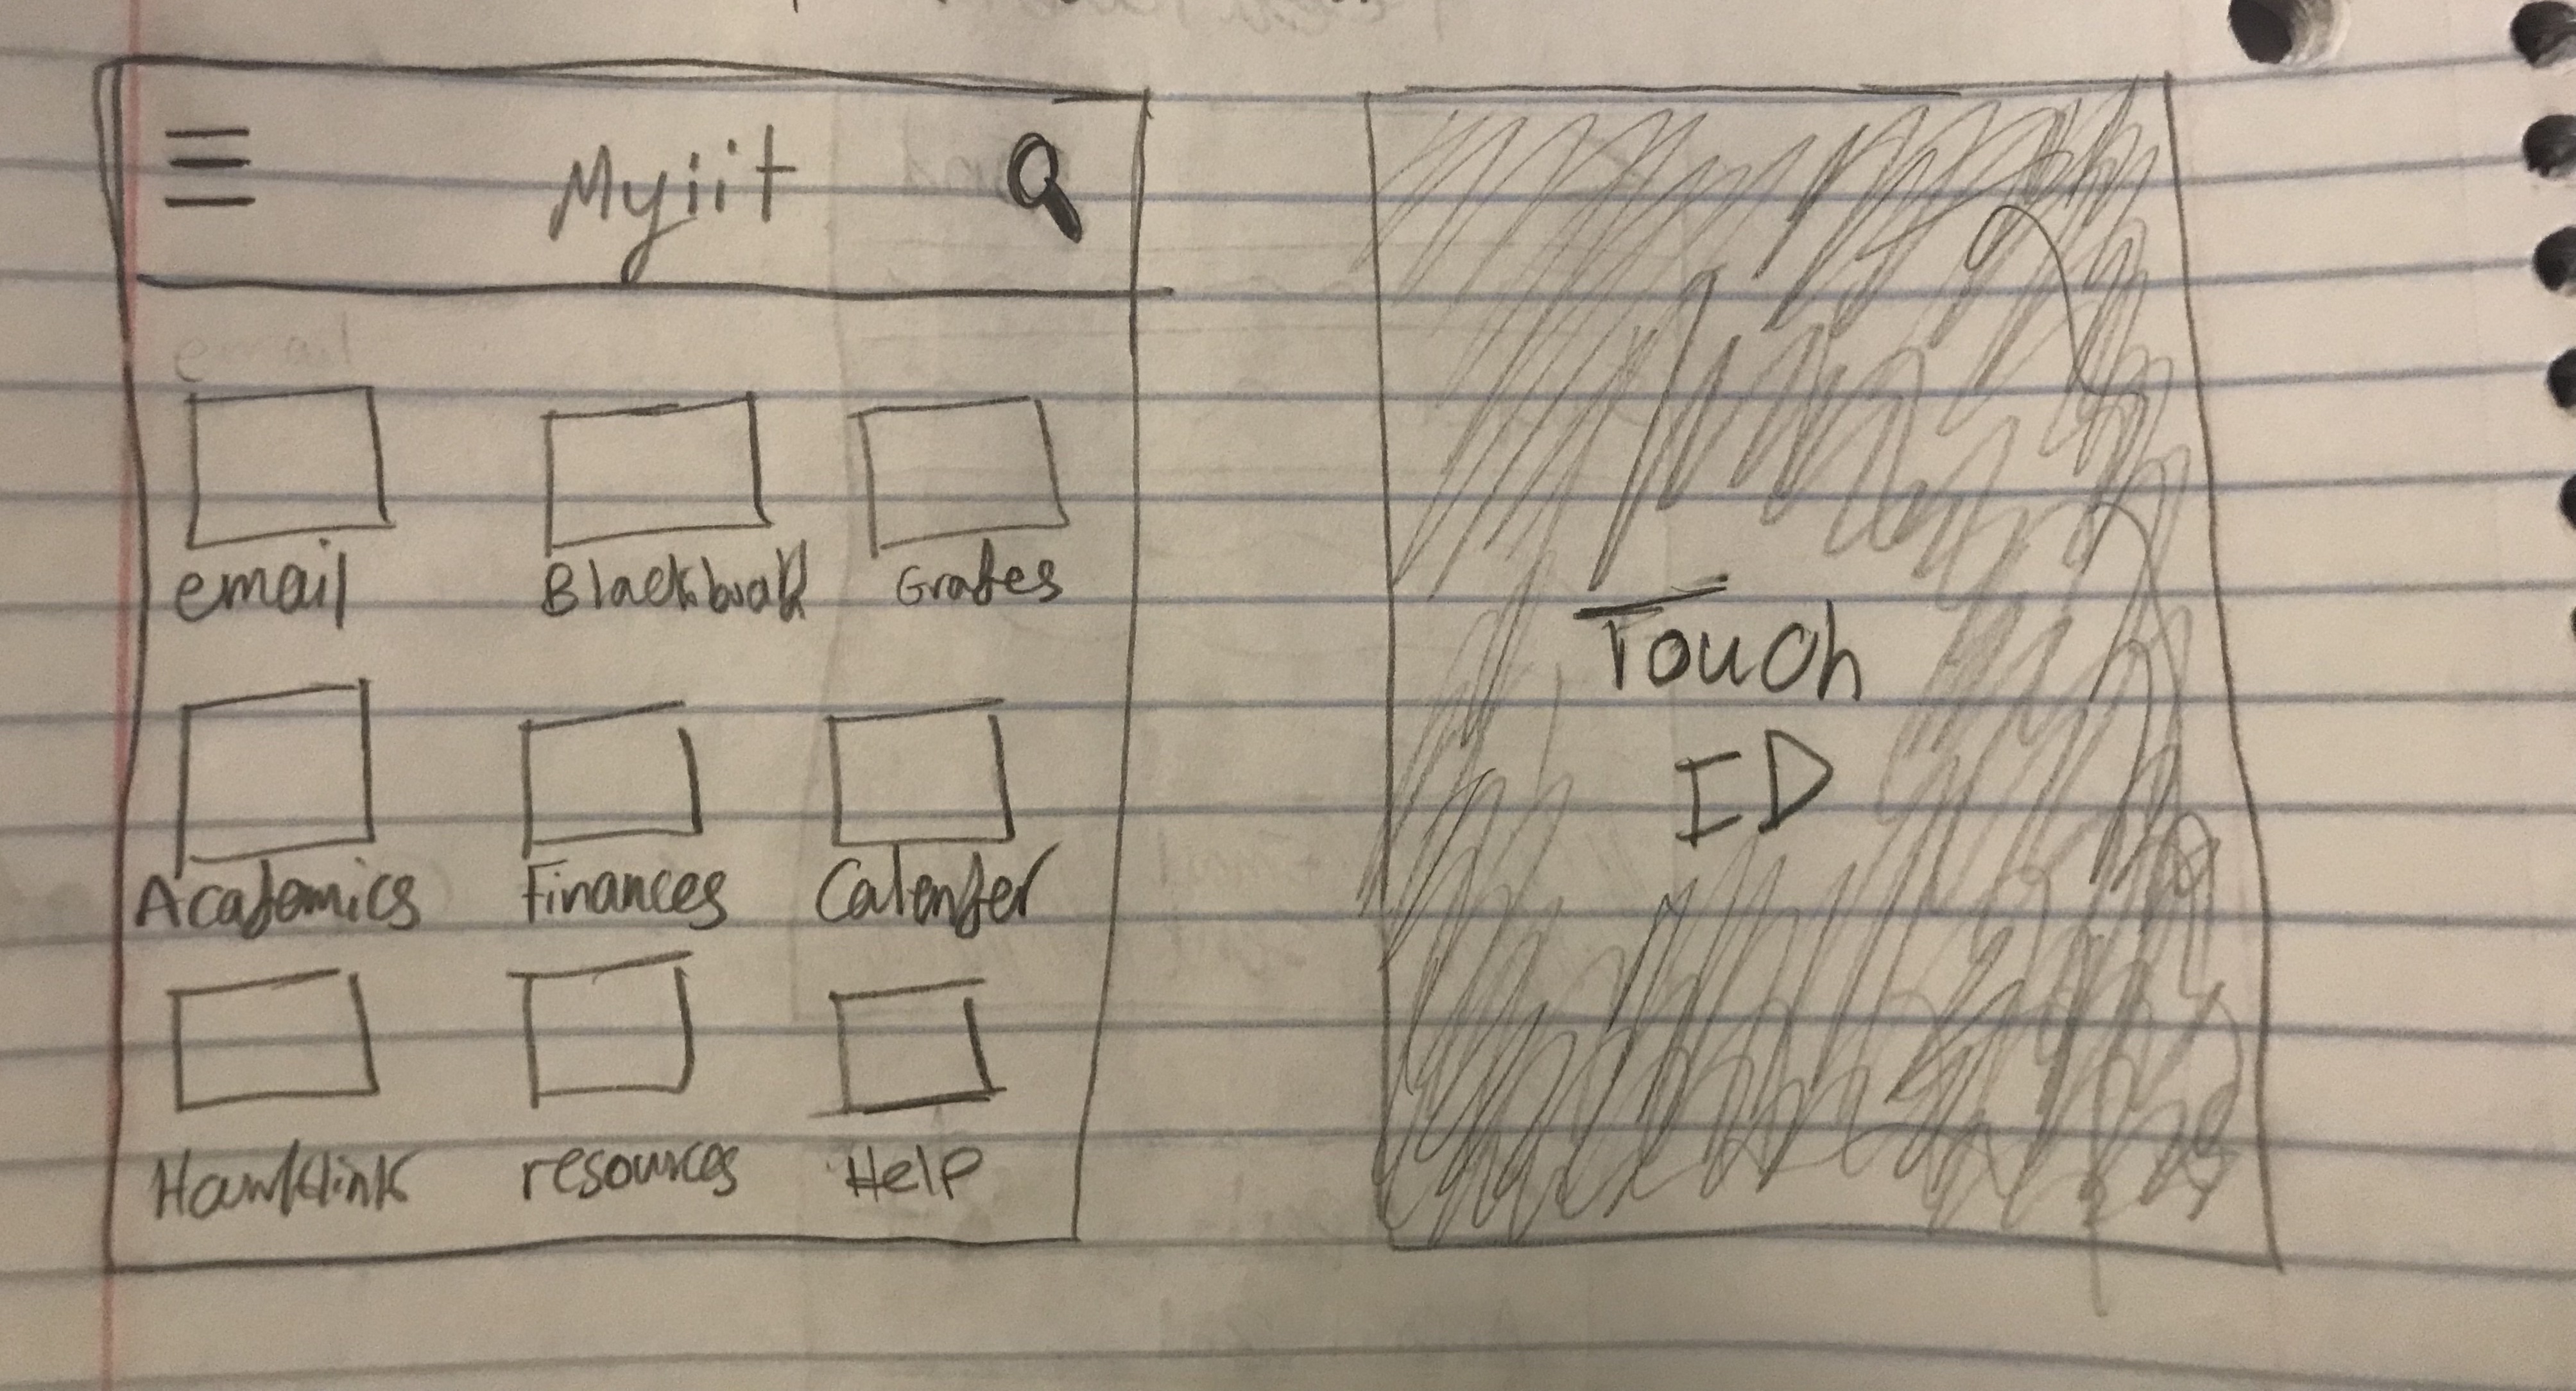 Myiit
email Blackboard Grades
Academics Finances Calender
Hawklink resources Help
Touch
ID